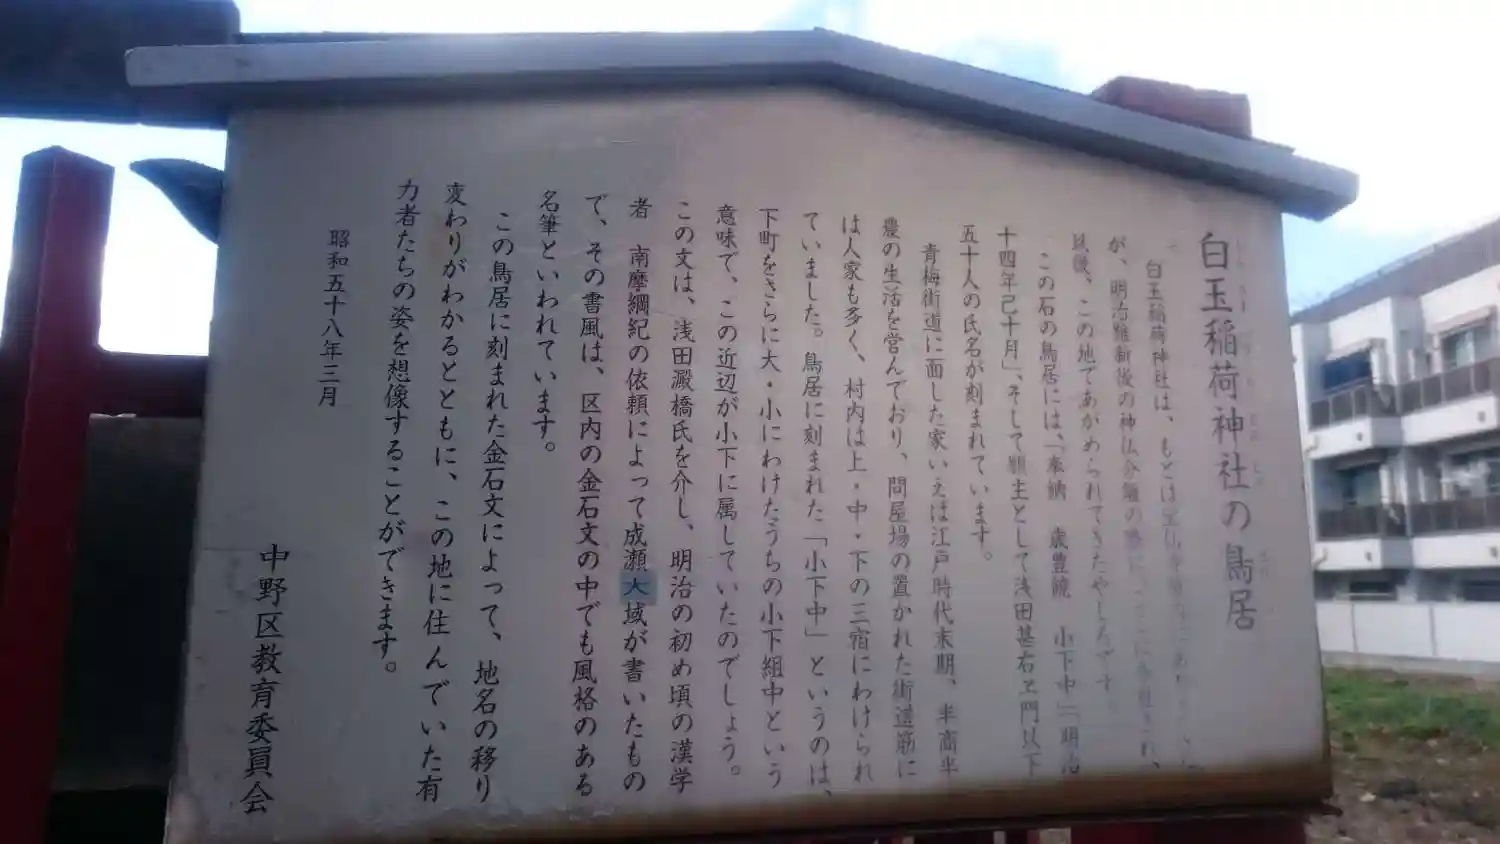 白玉稲荷神社の鳥居
白玉稲荷神社は、もとは
が、明治維新後の神仏分離の
以後、この地であがめられてきたやしろです。
この石の鳥居には、「奉納 歳豊饒 小下中」「明治
十四年己十月」、そして願主として浅田甚右ヱ門以下
五十人の氏名が刻まれています。
青梅街道に面した家いえは江戸時代末期、半商半
農の生活を営んでおり、問屋場の置かれた街道筋に
は人家も多く、村内は上・中・下の三宿にわけられ
ていました。鳥居に刻まれた「小下中」というのは、
下町をさらに大・小にわけたうちの小下組中という
意味で、この近辺が小下に属していたのでしょう。
この文は、浅田澱橋氏を介し、明治の初め頃の漢学
者 南摩綱紀の依頼によって成瀬大域が書いたもの
で、その書風は、区内の金石文の中でも風格のある
名筆といわれています。
この鳥居に刻まれた金石文によって、地名の移り
変わりがわかるとともに、この地に住んでいた有
力者たちの姿を想像することができます。
昭和五十八年三月
中野区教育委員会